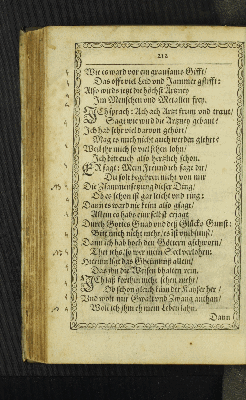 212
Wie es ward vor ein grausams Gifft/
Das offt viel Leid und Jammer gstifft:
Also wirds jetzt die höchst Artzney
Jen Menschen und Metallen frey.
ICh sprach: Ach ach Artzt fromm und traut/
Sagt wie wird die Artzney gebaut?
Ich hab sehr viel darvon gehört/
Mag es mich nicht auch werden glehrt?
Weil ihr mich so viel sehen lohn/
Ich bitt euch also herzlich schon.
ER sagt: Mein Freund ich sage dir/
Du solt begehren nicht von mir
Die Zusammensetzung dieser Ding/
Ob es schon ist gar leicht und ring:
Dann es ward mir keim also gsagt/
Allein es habs einr selbst erjagt
Durch Gottes Gnad und des Glücks Gunst:
Bitt mich nicht mehr/ es ist umbsunst/
Dann ich hab hoch den Göttern gschworn/
Thet ichs/ so wer mein Seel verlohrn:
Hierinn ligt das Gheimnuß allein/
Das ihn die Weisen bhalten rein.
ICh sah fortin nicht sehen mehr/
Ob schon gleich käm der Kayser her/
Und wolt mir Gwalt und Zwang anthan/
Wolt ich ihm eh mein Leben lahn.
Dann